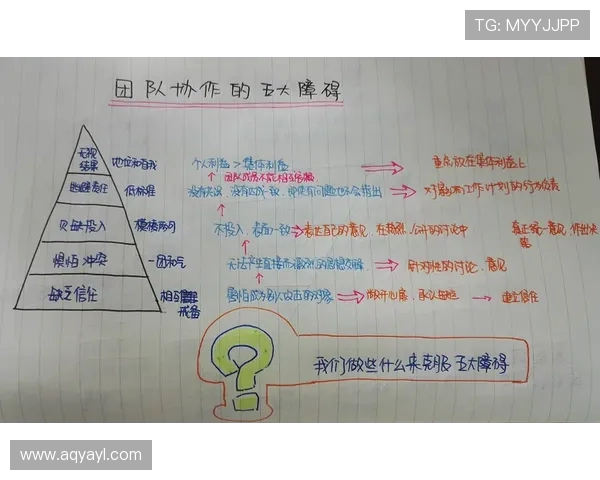 TG: MYYJJPP
团队协作的五大障碍
无视
结果
地位和自我
个人利益 > 集体利益
重点放在集体利益上
团队成员不能相互
逃避责任
低标准
没有达成一致，即使有问题也不会指出
对影响工作计划的行为负责
欠缺投入
模棱两可
不投入，表面一致
表达自己的意见，在 公开的讨论中
真正统一意见，作出决
惧怕冲突
一团和气
无法产生直接而激烈的思想交锋
针对性的讨论、意见
缺乏信任
相互
戒备
害怕成为别人攻击的对象
敞开心扉，承认
建立信任
我们做些什么来克服五大障碍
www.aqyayl.com